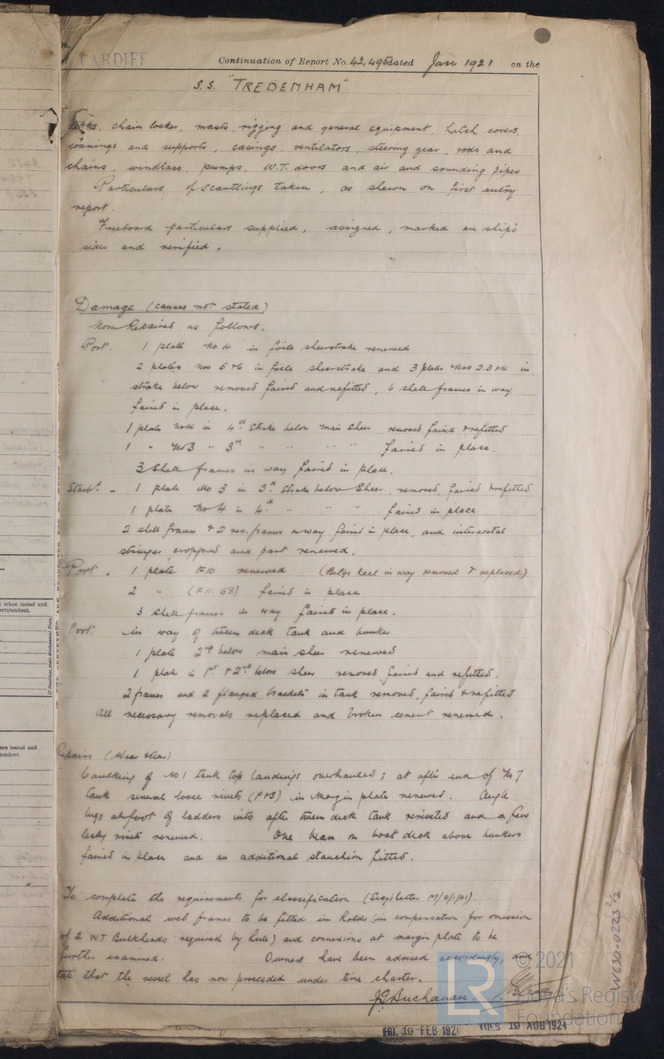 CARDIFF
Continuation of Report No. 42,495 dated Jan 1921 on the
S.S. "TREDENHAM"
chain locker, masts, rigging and general equipment, hatch covers,
coamings and supports, casings, ventilators, steering gear, rods and
chains, windlass, pumps, W.T. doors and air and sounding pipes
Particulars of Scantlings taken, as shewn on first entry
report.
Freeboard particulars supplied, assigned, marked on ship's
sides and verified.
Damage (causes not stated)
Now Repaired as follows.
Port. 1 plate No 4 in fo'cle sheerstrake renewed
2 plates Nos 5 & 6 in fo'cle sheerstrake and 3 plates Nos 2.3 & 4 in
strake below removed faired and refitted, 6 shell frames in way
faired in place.
1 plate No 4 in 4th Strake below main sheer removed faired & refitted
1 " No 3 " 3rd " " " " faired in place.
3 Shell frames in way faired in place.
Starbd. - 1 plate No 3 in 3rd Strake below Sheer, removed, faired & refitted
1 plate No 4 in 4th " " " faired in place
2 shell frames & 2 rev. frames in way faired in place, and intercostal
stringer cropped and part renewed.
Port - 1 plate F.10 renewed (Bilge keel in way removed & replaced)
2 " (F11. G8) faired in place
3 Shell frames in way faired in place.
Port. in way of tween deck tank and bunker
1 plate 2nd below main sheer renewed
1 plate in 1st & 2nd below sheer removed, faired and refitted.
2 frames and 2 flanged brackets in tank removed, faired & refitted
All necessary removals replaced and broken cement renewed.
Repairs (Wear & tear)
Caulking of No 1 tank top landings overhauled; at after end of No 7
tank several loose rivets (P & S) in margin plate renewed. Angle
lugs at foot of ladders into after tween deck tank reriveted and a few
leaky rivets renewed. One beam on boat deck above bunkers
faired in place and an additional stanchion fitted.
To complete the requirements for classification (Secy's letter
Additional web frames to be fitted in holds (in compensation for omission
of 2 W.T Bulkheads required by Rule) and connexions at margin plate to be
further examined. Owners have been advised accordingly,
state that the vessel has now proceeded under time charter.
J G Buchanan
FRI. 19 FEB 1921
TUES 19 AUG 1924
W630-0223 2/2
LR
© 2021
Lloyd's Register
Foundation